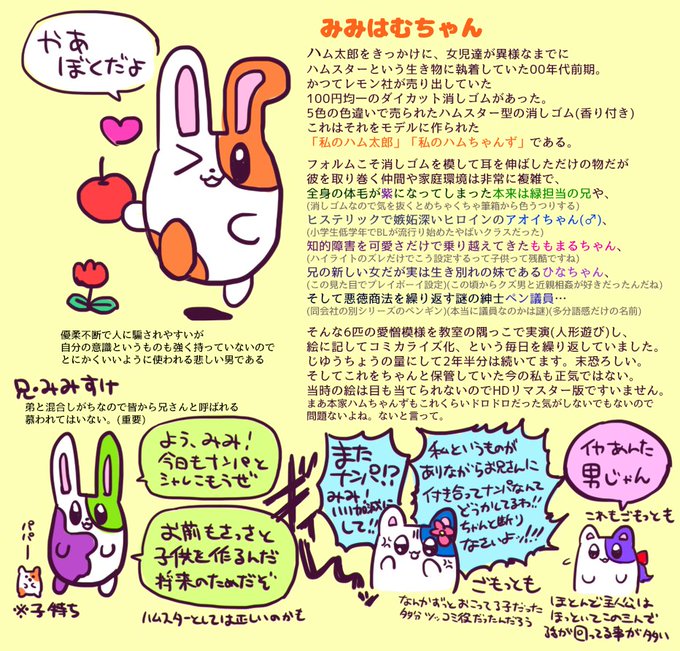 みみはむちゃん
やあ
ぼくだよ
ハム太郎をきっかけに、女児達が異様なまでに
ハムスターという生き物に執着していた00年代前期。
かつてレモン社が売り出していた
100円均一のダイカット消しゴムがあった。
5色の色違いで売られたハムスター型の消しゴム(香り付き)
これはそれをモデルに作られた
「私のハム太郎」「私のハムちゃんず」である。
フォルムこそ消しゴムを模して耳を伸ばしただけの物だが
彼を取り巻く仲間や家庭環境は非常に複雑で、
全身の体毛が紫になってしまった本来は緑担当の兄や、
(消しゴムなので気を抜くとめちゃくちゃ筆箱から色うつりする)
ヒステリックで嫉妬深いヒロインのアオイちゃん(♂)、
(小学生低学年でBLが流行り始めたやばいクラスだった)
知的障害を可愛さだけで乗り越えてきたももまるちゃん、
(ハイライトのズレだけでこう設定するって子供って残酷ですね)
兄の新しい女だが実は生き別れの妹であるひなちゃん、
(この見た目でプレイボーイ設定)(この頃からクズ男と近親相姦が好きだったんだね)
そして悪徳商法を繰り返す謎の紳士ペン議員…
(同会社の別シリーズのペンギン)(本当に議員なのかは謎)(多分語感だけの名前)
そんな6匹の愛憎模様を教室の隅っこで実演(人形遊び)し、
絵に記してコミカライズ化、という毎日を繰り返していました。
じゆうちょうの量にして2年半分は続いてます。末恐ろしい。
そしてこれをちゃんと保管していた今の私も正気ではない。
当時の絵は目も当てられないのでHDリマスター版ですいません。
まあ本家ハムちゃんずもこれくらいドロドロだった気がしないでもないので
問題ないよね。ないと言って。
優柔不断で人に騙されやすいが
自分の意識というものも強く持っていないので
とにかくいいように使われる悲しい男である
兄・みみすけ
弟と混合しがちなので皆から兄さんと呼ばれる
慕われてはいない。(重要)
よう、みみ!
今日もナンパと
シャレこもうぜ
お前もさっさと
子供を作るんだ
将来のためだぞ
パパー
※子持ち
ハムスターとしては正しいのかも
また
ナンパ!?
みみ!
いい加減に
して!!
私というものが
ありながらお兄さんに
付き合ってナンパなんて
どうかしてるわ!!
ちゃんと断り
なさいよッ!!!
ごもっとも
なんかずっとおこってる子だった
多分ツッコミ役だったんだろう
イヤあんた
男じゃん
これもごもっとも
ほとんど主人公は
ほっといてこの三人で
話が回ってる事が多い